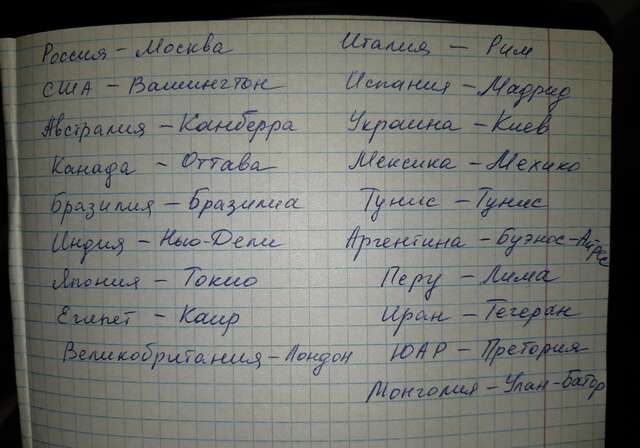 Россия – Москва
США – Вашингтон
Австралия – Канберра
Канада – Оттава
Бразилия – Бразилиа
Индия – Нью-Дели
Япония – Токио
Египет – Каир
Великобритания – Лондон
Италия – Рим
Испания – Мадрид
Украина – Киев
Мексика – Мехико
Тунис – Тунис
Аргентина – Буэнос-Айрес
Перу – Лима
Иран – Тегеран
ЮАР – Претория
Монголия – Улан-Батор